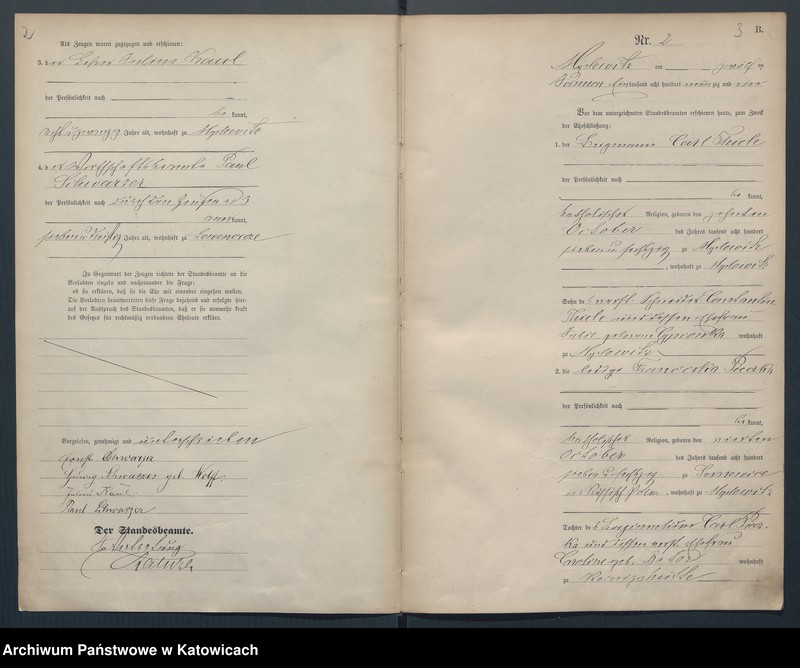 2
Als Zeugen waren zugezogen und erschienen:
3. der Lehrer Julius Kaul
der Persönlichkeit nach
be kannt,
Jahre alt, wohnhaft zu Myslowitz
4. der Wirthschaftsbeamte Paul
Schwarzer
der Persönlichkeit nach durch den Zeugen ad 3
anerkannt,
Jahre alt, wohnhaft zu
In Gegenwart der Zeugen richtete der Standesbeamte an die
Verlobten einzeln und nacheinander die Frage:
ob sie erklären, daß sie die Ehe mit einander eingehen wollen.
Die Verlobten beantworteten diese Frage bejahend und erfolgte hier-
auf der Ausspruch des Standesbeamten, daß er sie nunmehr kraft
des Gesetzes für rechtmäßig verbundene Eheleute erkläre.
Vorgelesen, genehmigt und unterschrieben
Ernst Schwarzer
Hedwig Schwarzer geb. Wolff
Julius Kaul
Paul Schwarzer
Der Standesbeamte.
In Vertretung
3 B.
Nr. 2
Myslowitz am zwölften
Januar Eintausend acht hundert neunzig und
Vor dem unterzeichneten Standesbeamten erschienen heute, zum Zweck
der Eheschließung:
1. der Bergmann Carl Thiele
der Persönlichkeit nach
be kannt,
katholischer Religion, geboren den zehnten
October des Jahres tausend acht hundert
sieben und sechzig zu Myslowitz
, wohnhaft zu Myslowitz
Sohn des verst. Schneider Constantin
Thiele und dessen Ehefrau
Julie geborene wohnhaft
zu Myslowitz
2. die ledige Franciska
der Persönlichkeit nach
be kannt,
katholischer Religion, geboren den vierten
October des Jahres tausend acht hundert
sieben u. sechzig zu Sosnowice
in Russisch Polen, wohnhaft zu Myslowitz
Tochter des Carl
und dessen verst. Ehefrau
Caroline geb. wohnhaft
zu Königshütte
Archiwum Państwowe w Katowicach